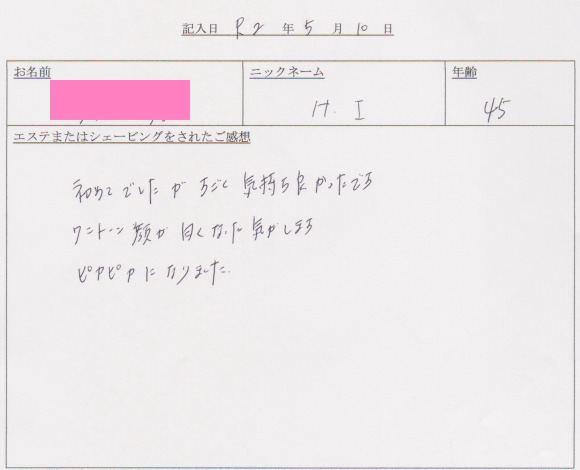 記入日 R2 年 5 月 10 日
お名前 ニックネーム 年齢
H. I 45
エステまたはシェービングをされたご感想
初めてでしたがすごく気持ち良かったです
ワントーン顔が白くなった気がします
ピカピカになりました.